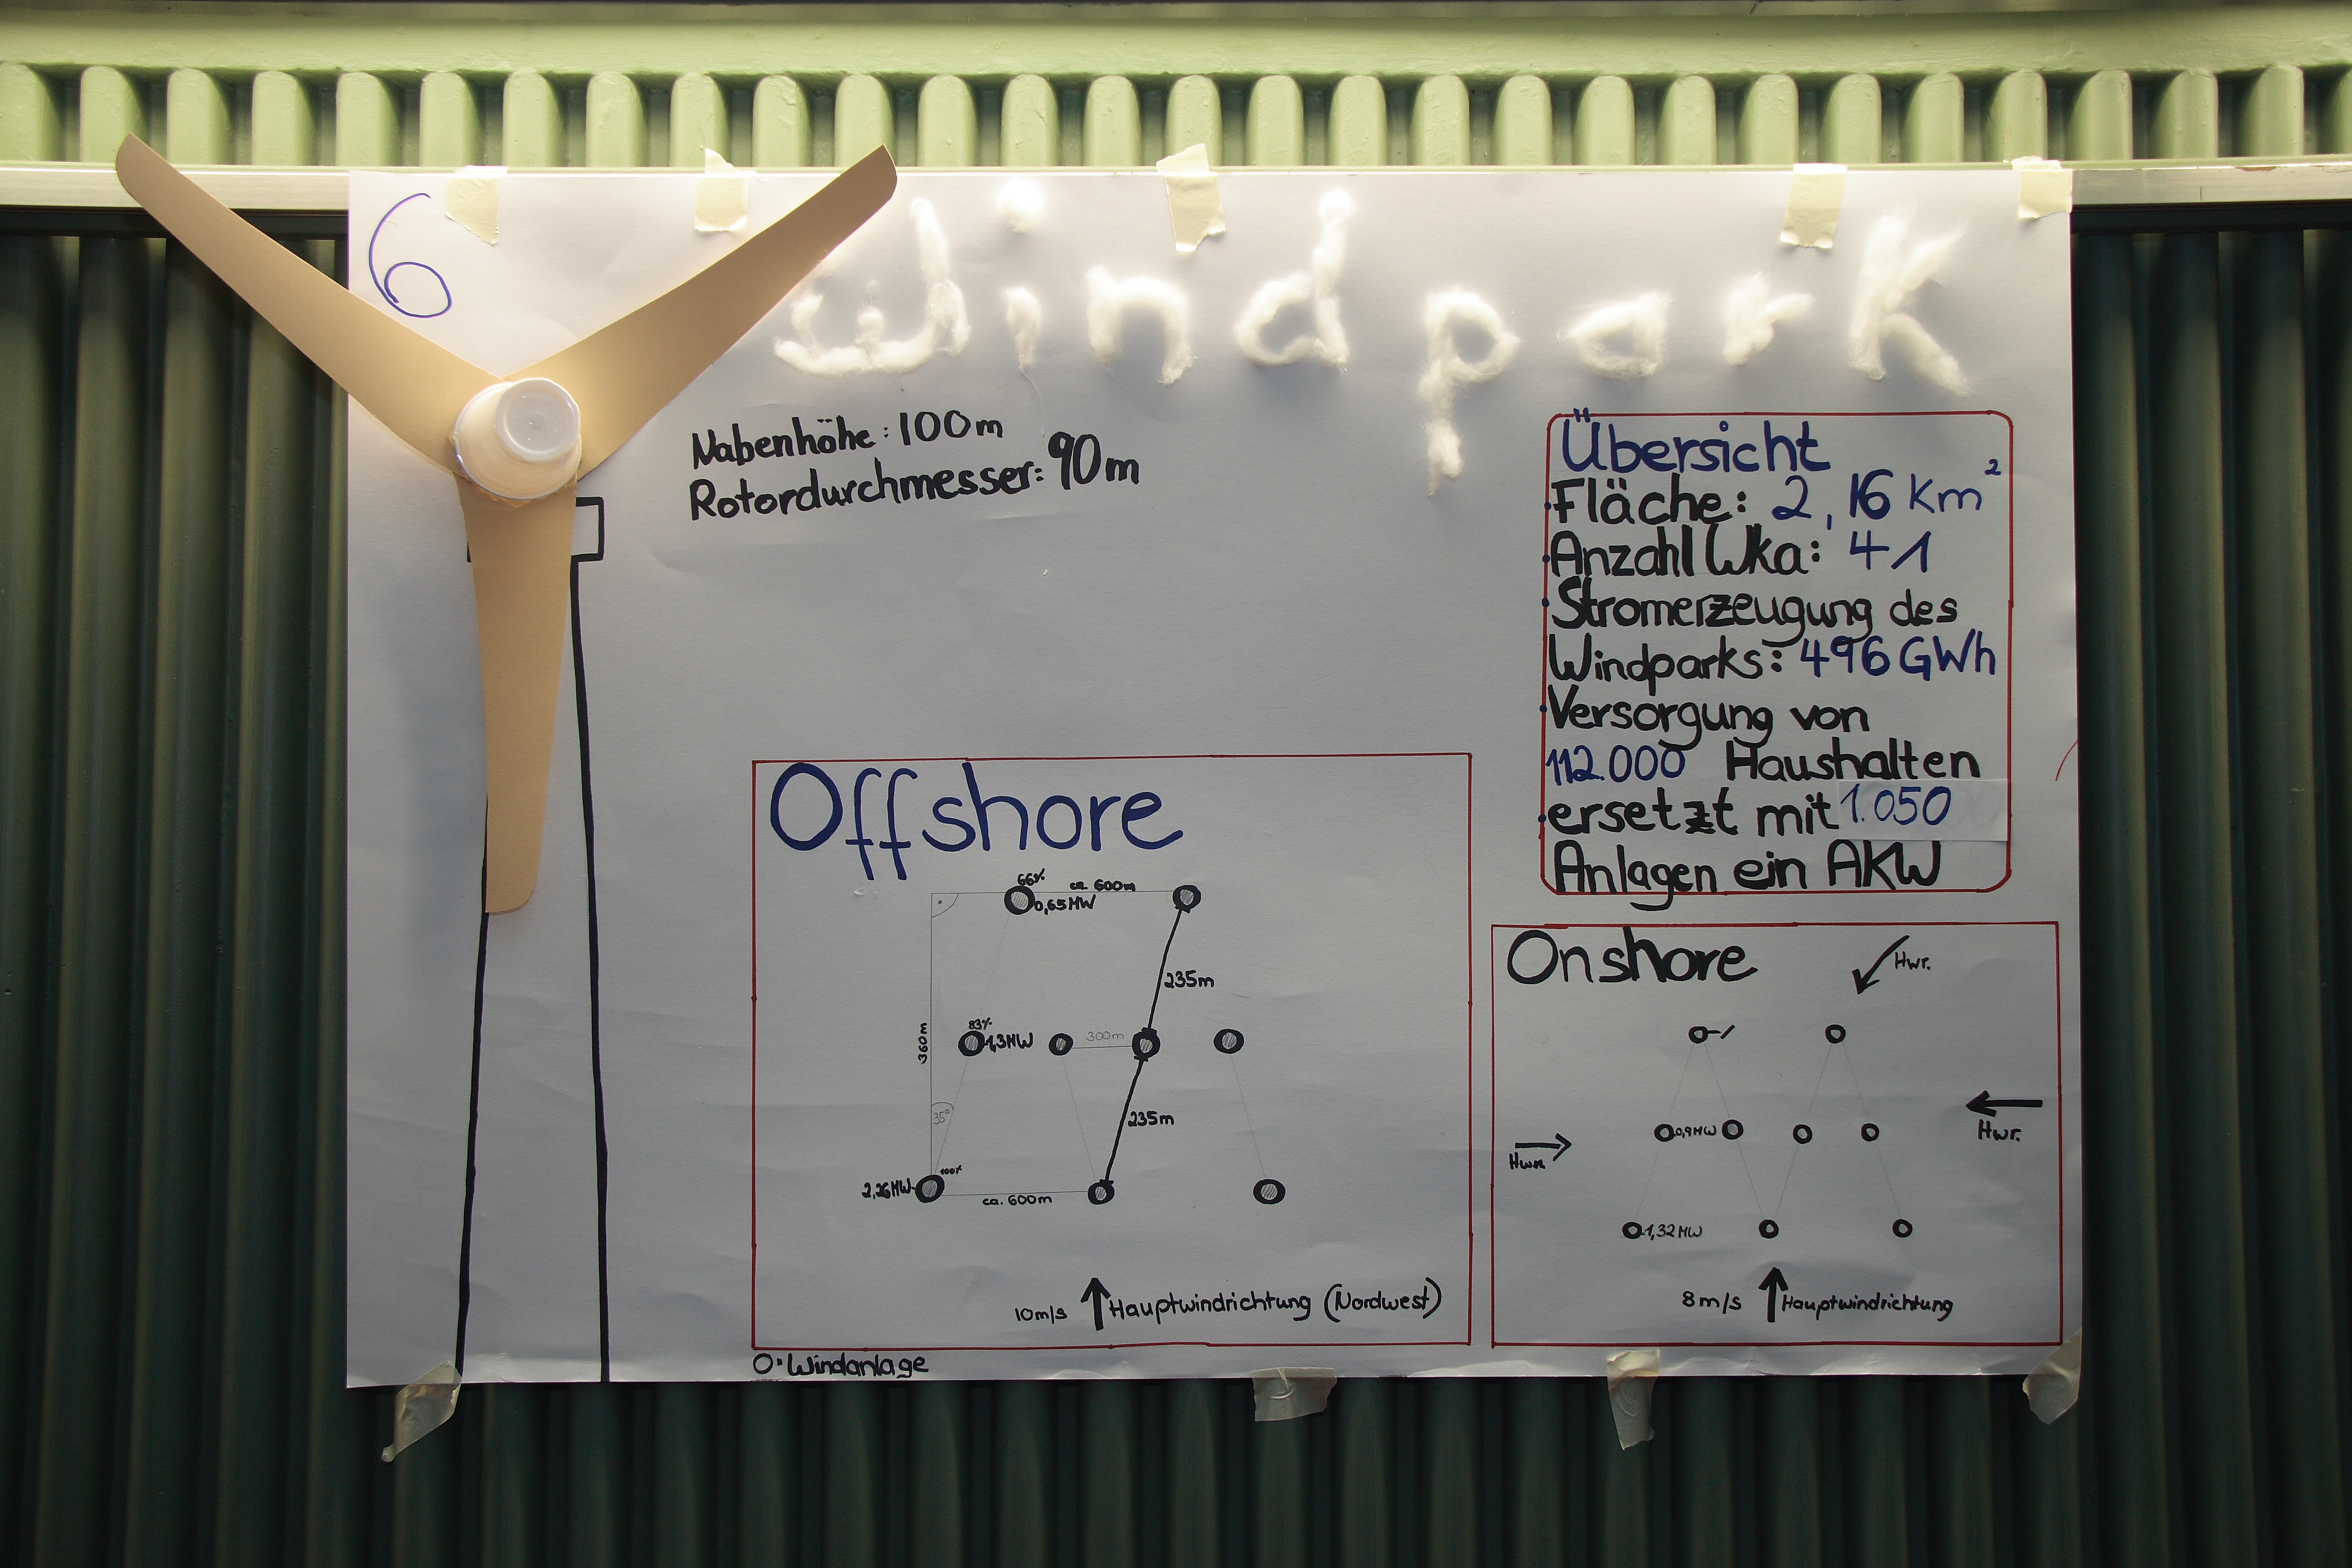 6
Windpark
Nabenhöhe: 100m
Rotordurchmesser: 90m
Übersicht
·Fläche: 2,16 Km²
·Anzahl Wka: 41
·Stromerzeugung des
Windparks: 496 GWh
·Versorgung von
112.000 Haushalten
·ersetzt mit 1.050
Anlagen ein AKW
Offshore
66%
ca. 600m
0,65MW
235m
360m
83%
1,3MW
300m
35°
235m
100%
2,26MW
ca. 600m
10m/s Hauptwindrichtung (Nordwest)
O: Windanlage
Onshore
Hwr.
0,9MW
Hwr.
1,32MW
8m/s Hauptwindrichtung